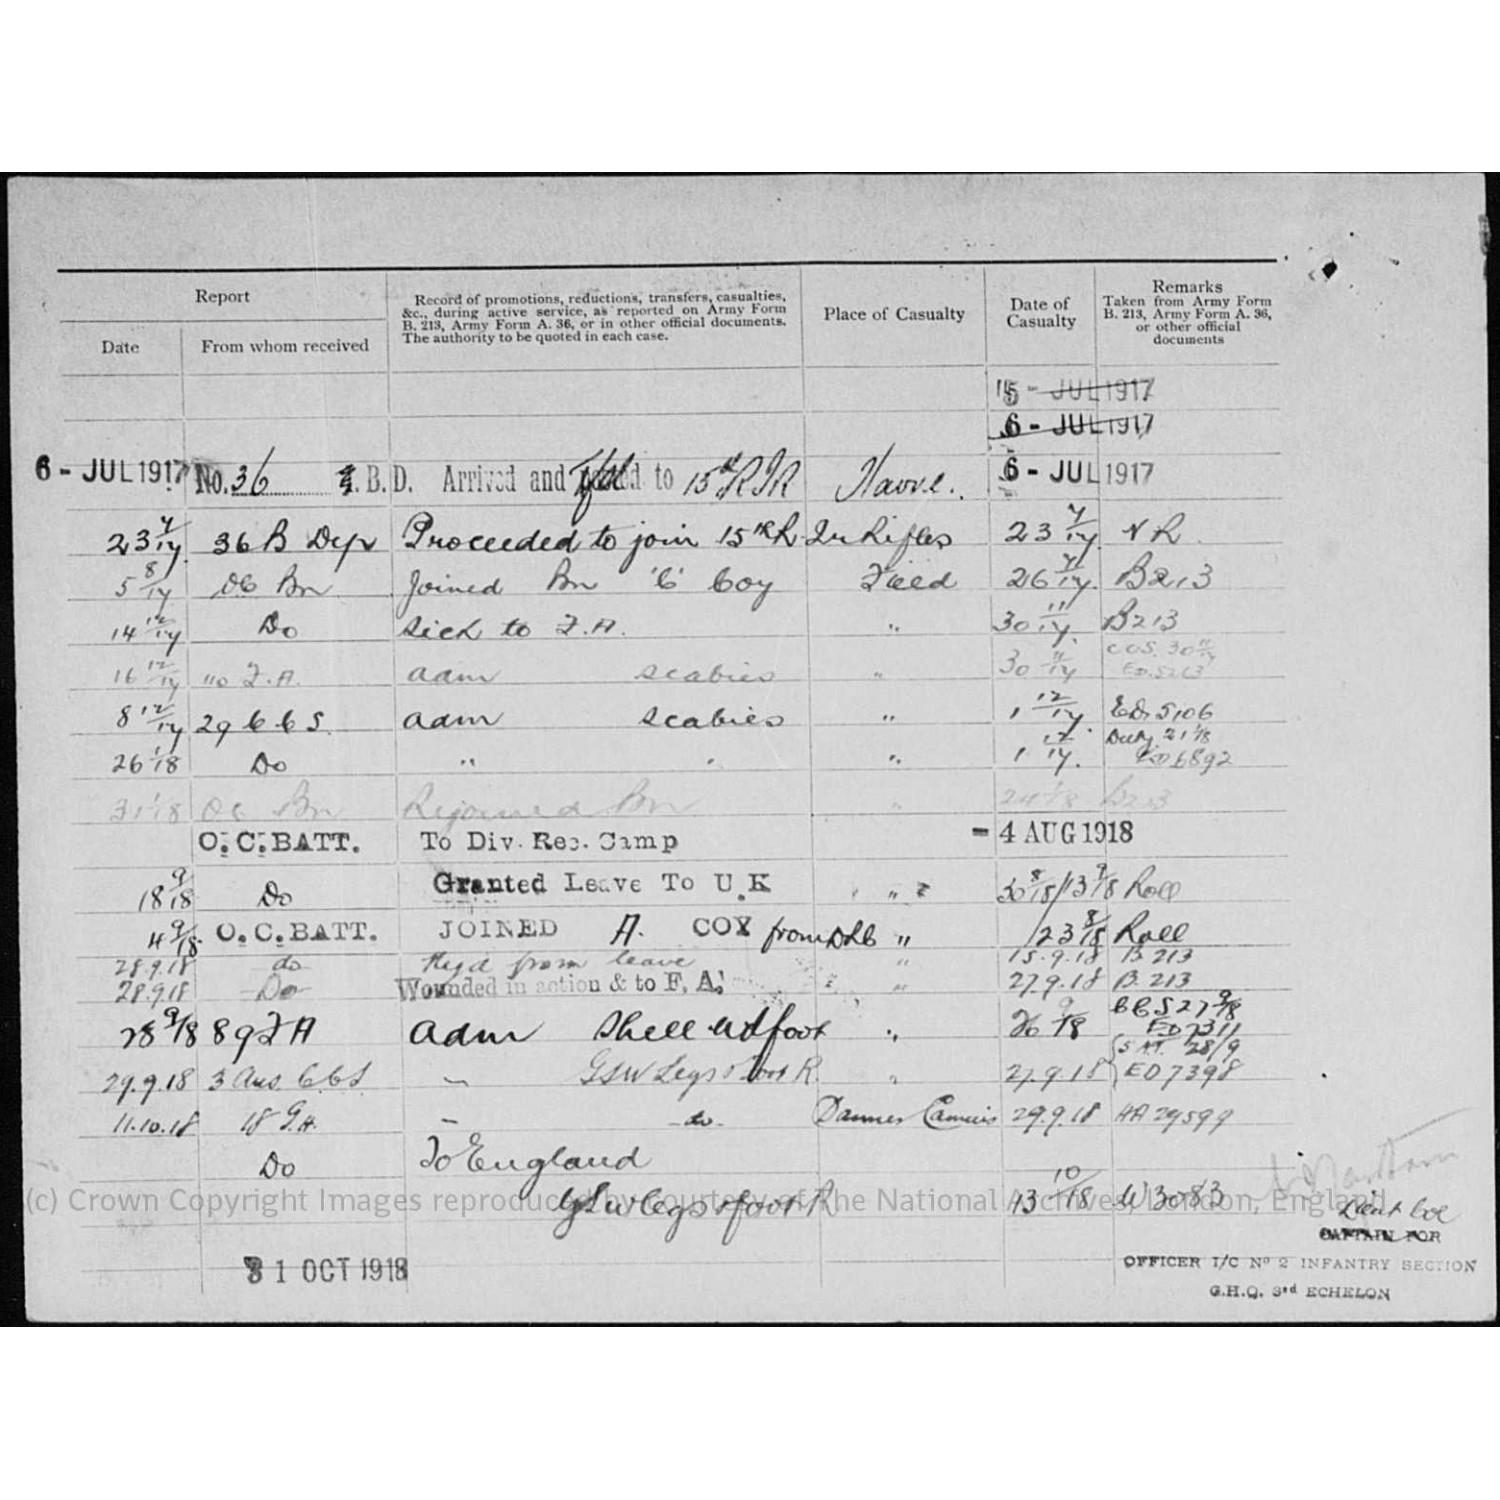 Report
Date
From whom received
Record of promotions, reductions, transfers, casualties,
&c., during active service, as reported on Army Form
B. 213, Army Form A. 36, or in other official documents.
The authority to be quoted in each case.
Place of Casualty
Date of
Casualty
Remarks
Taken from Army Form
B. 213, Army Form A. 36,
or other official
documents
5 - JUL 1917
6 - JUL 1917
6 - JUL 1917 No. 36 I.B.D. Arrived and to 15th RIR Havre. 6 - JUL 1917
23 7/17 36 B Dep Proceeded to join 15th R. Ir Rifles 23 7/17 NR
5 8/17 OC Bn Joined Bn 'C' Coy Field 26 7/17 B213
14 12/17 Do Sick to F.A. " 30 11/17 B213
16 12/17 110 F.A. adm scabies " 30 11/17 CCS. 30 11/17
ED.5263
8 12/17 29 CCS. adm scabies " 1 12/17 ED. 5106
26 1/18 Do " " " 1 12/17. Duty 21 1/18
ED 6892
31 1/18 OC Bn Rejoined Bn " 24 1/18 B213
O.C.BATT. To Div. Rec. Camp - 4 AUG 1918
18 9/18 Do Granted Leave To U.K " 30 8/18/13 9/18 Roll
4 9/18 O.C.BATT. JOINED A. COY from " 23 8/18 Roll
28.9.18 do from leave " 15.9.18 B.213
28.9.18 Do Wounded in action & to F.A. " 27.9.18 B.213
28 9/18 89 FA adm Shell wd foot " 26 9/18 CCS 27 9/18
ED 7311
28/9
29.9.18 3 Aus. CCS — GSW Legs & foot R. " 27.9.18 ED 7398
11.10.18 18 G.H. — do Dannes Camiers 29.9.18 HA 29599
Do To England
GSW legs & foot R 13 10/18 W3083
(c) Crown Copyright Images reproduced by Courtesy of The National Archives, London, England
Lieut Col
CAPTAIN FOR
OFFICER I/C No 2 INFANTRY SECTION
G.H.Q. 3rd ECHELON
31 OCT 1918